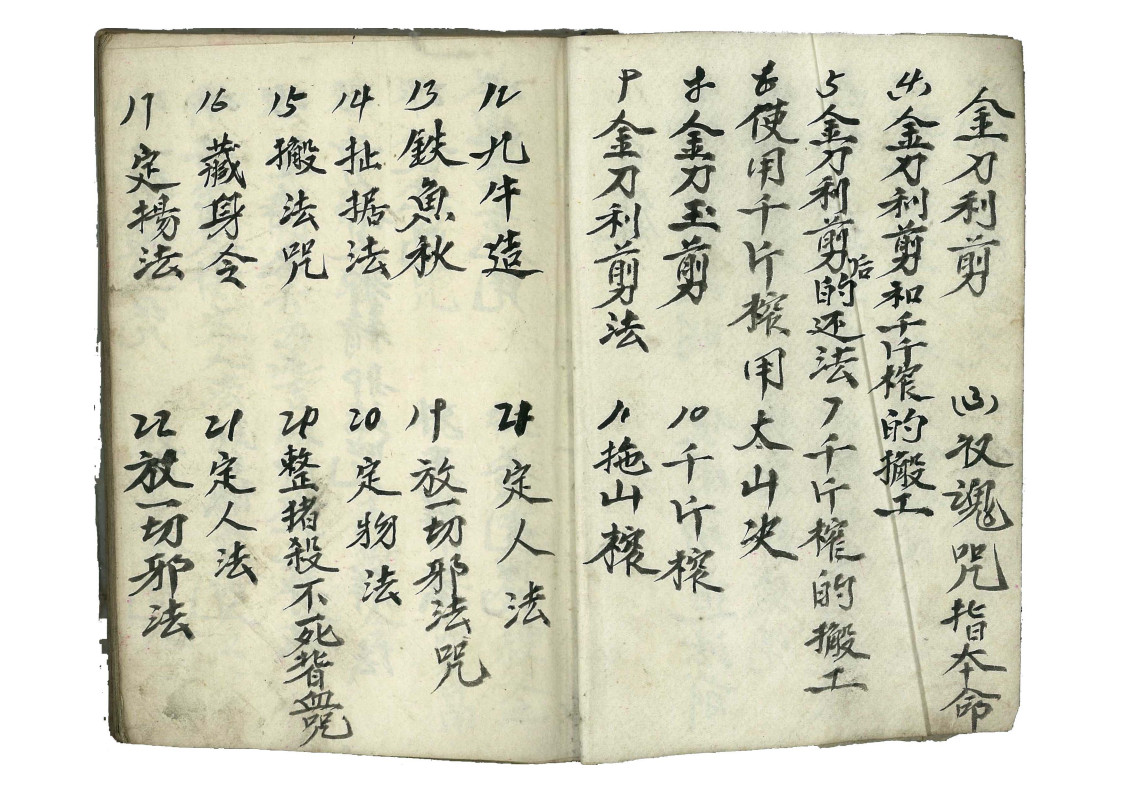 金刀利剪 (3) 魂咒指本命
4 金刀利剪和千斤榨的搬工
5 金刀利剪后的还法 7 千斤榨的搬工
6 使用千斤榨用太山决
8 金刀玉剪 10 千斤榨
9 金刀利剪法 11 拖山榨
12 九牛造 定人法
13 鉄魚秋 19 放一切邪法咒
14 扯据法 20 定物法
15 搬法咒 整猪殺不死背血咒
16 藏身令 21 定人法
17 定揚法 22 放一切邪法